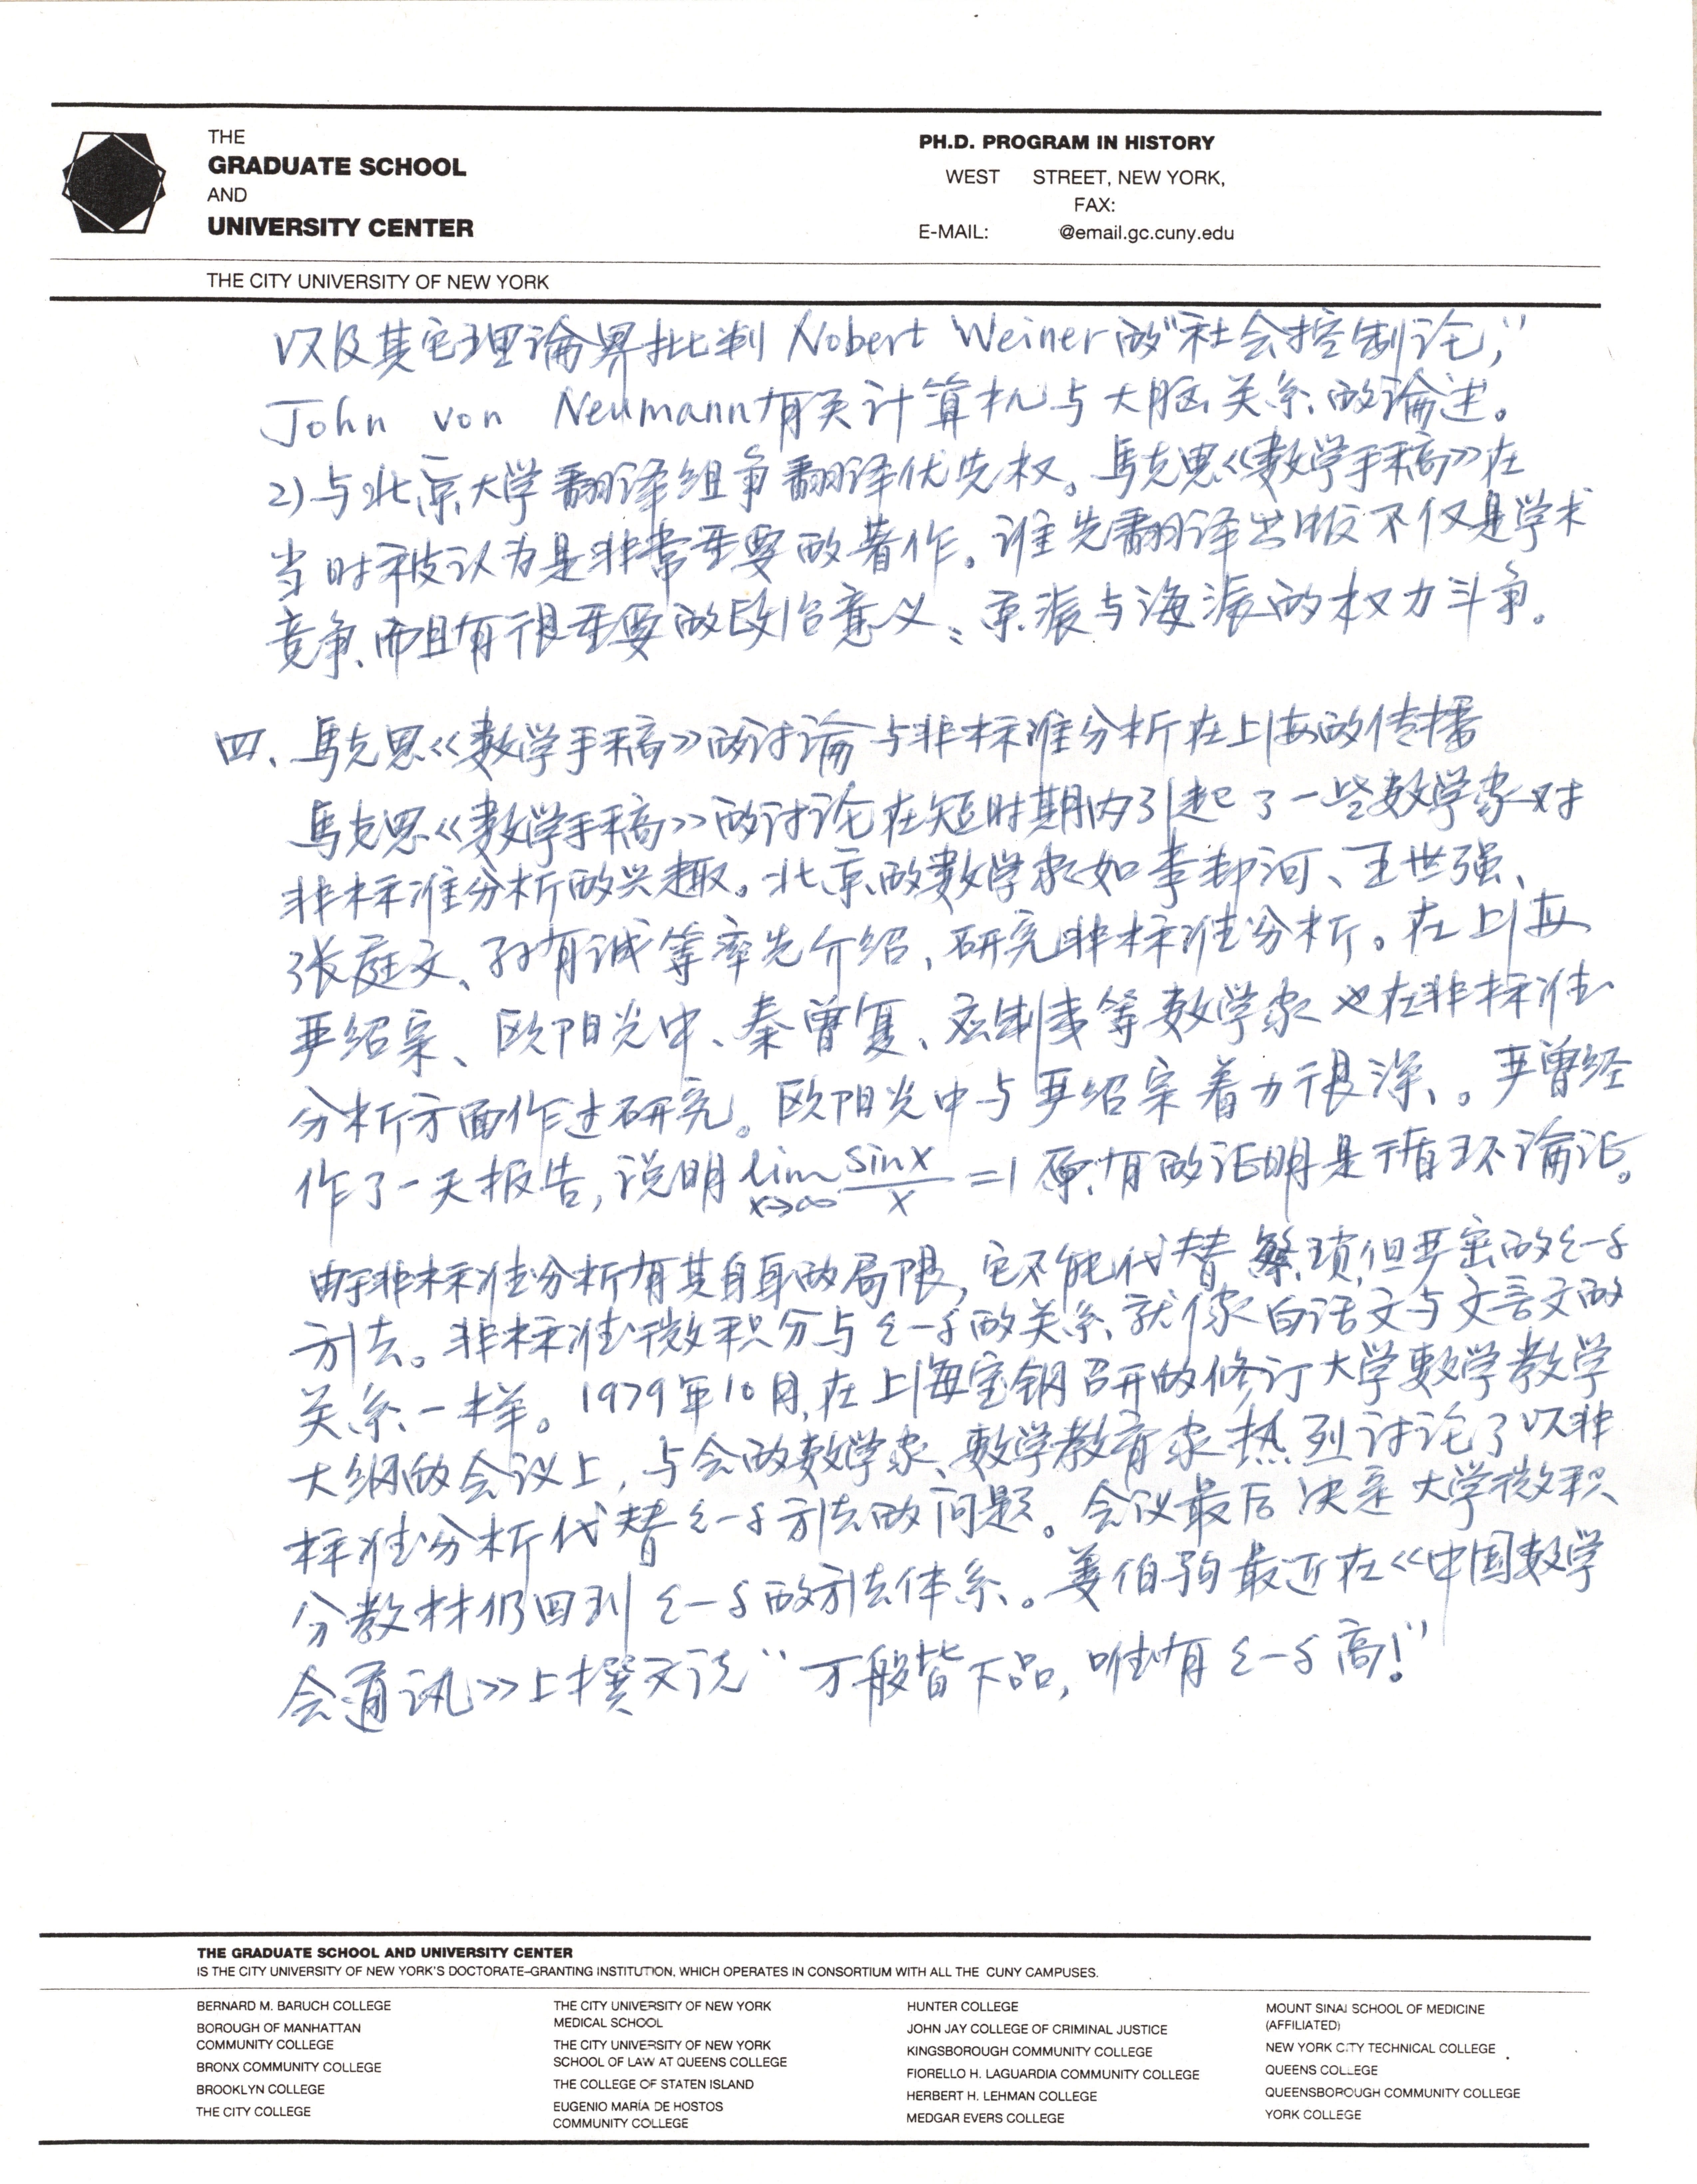 THE
GRADUATE SCHOOL
AND
UNIVERSITY CENTER
THE CITY UNIVERSITY OF NEW YORK
PH.D. PROGRAM IN HISTORY
WEST STREET, NEW YORK,
FAX:
E-MAIL: @email.gc.cuny.edu
以及其它理論界批判 Nobert Weiner 的“社会控制论,”
John von Neumann有关计算机与大脑关系的論述。
2)与北京大学翻译组争翻译优先权。馬克思《数学手稿》在
当时被认为是非常重要的著作。谁先翻译出版不仅是学术
竞争、而且有很重要的政治意义。京派与海派的权力斗争。
四、馬克思《数学手稿》的討論与非标准分析在上海的传播
馬克思《数学手稿》的讨论在短时期内引起了一些数学家对
非标准分析的兴趣。北京的数学家如李邦河、王世强、
张庭文、孙有诚等率先介绍,研究非标准分析。在上海
严绍宗、欧阳光中、秦曾复、应制夷等数学家也在非标准
分析方面作过研究。欧阳光中与严绍宗着力很深。严曾经
作了一天报告,说明 lim x→∞ sinx/x =1 原有的证明是循环論证。
由于非标准分析有其自身的局限,它不能代替繁琐但严密的ε-δ
方法。非标准微积分与ε-δ的关系、就像白话文与文言文的
关系一样。1979年10月,在上海宝钢召开的修订大学数学教学
大纲的会议上,与会的数学家、数学教育家热烈讨论了以非
标准分析代替ε-δ方法的问题。会议最后决定大学微积
分教材仍回到ε-δ的方法体系。姜伯驹最近在《中国数学
会通讯》上撰文说“万般皆下品,唯有ε-δ高!”
THE GRADUATE SCHOOL AND UNIVERSITY CENTER
IS THE CITY UNIVERSITY OF NEW YORK'S DOCTORATE-GRANTING INSTITUTION, WHICH OPERATES IN CONSORTIUM WITH ALL THE CUNY CAMPUSES.
BERNARD M. BARUCH COLLEGE
BOROUGH OF MANHATTAN
COMMUNITY COLLEGE
BRONX COMMUNITY COLLEGE
BROOKLYN COLLEGE
THE CITY COLLEGE
THE CITY UNIVERSITY OF NEW YORK
MEDICAL SCHOOL
THE CITY UNIVERSITY OF NEW YORK
SCHOOL OF LAW AT QUEENS COLLEGE
THE COLLEGE OF STATEN ISLAND
EUGENIO MARÍA DE HOSTOS
COMMUNITY COLLEGE
HUNTER COLLEGE
JOHN JAY COLLEGE OF CRIMINAL JUSTICE
KINGSBOROUGH COMMUNITY COLLEGE
FIORELLO H. LAGUARDIA COMMUNITY COLLEGE
HERBERT H. LEHMAN COLLEGE
MEDGAR EVERS COLLEGE
MOUNT SINAI SCHOOL OF MEDICINE
(AFFILIATED)
NEW YORK CITY TECHNICAL COLLEGE
QUEENS COLLEGE
QUEENSBOROUGH COMMUNITY COLLEGE
YORK COLLEGE